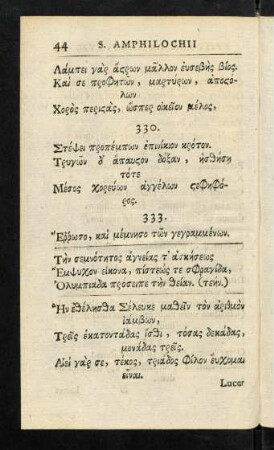 44 S. AMPHILOCHII
Λάμπει γὰρ ἄϛρων μᾶλλον ἐυσεβὴς βίος.
Καὶ σε προφητῶν, μαρτύρων, ἀποϛό-
λων
Χορὸς περιϛας, ὥσπερ οἰκεῖον μέλος,
330.
Στέψει προπέμπων ἐπινίκιον κρότον.
Τρυγῶν δ' ἄπαυϛον δόξαν, ἡσθήσῃ
τότε
Μέσος χορεύων ἀγγέλων ϛεφηφό-
ρος.
333.
Ἔῤῥωσο, καὶ μέμνησο τῶν γεγραμμένων.
Τὴν σεμνότητος ἁγνείας τ' ἀσκήσεως
Ἔμψυχον εἰκόνα, πίστεώς τε σφραγίδα,
Ὀλυμπιάδα πρόσειπε τὴν θείαν. (τεην.)
Ἢν ἐθέλησθα Σέλευκε μαθεῖν τὸν ἀριθμὸν
ἰάμβων,
Τρεῖς ἑκατοντάδας ἴσθι, τόσας δεκάδας,
μονάδας τρεῖς.
Αἰεὶ γὰρ σε, τέκος, τριάδος φίλον ἐυχομαι
εἶναι.
Lucet